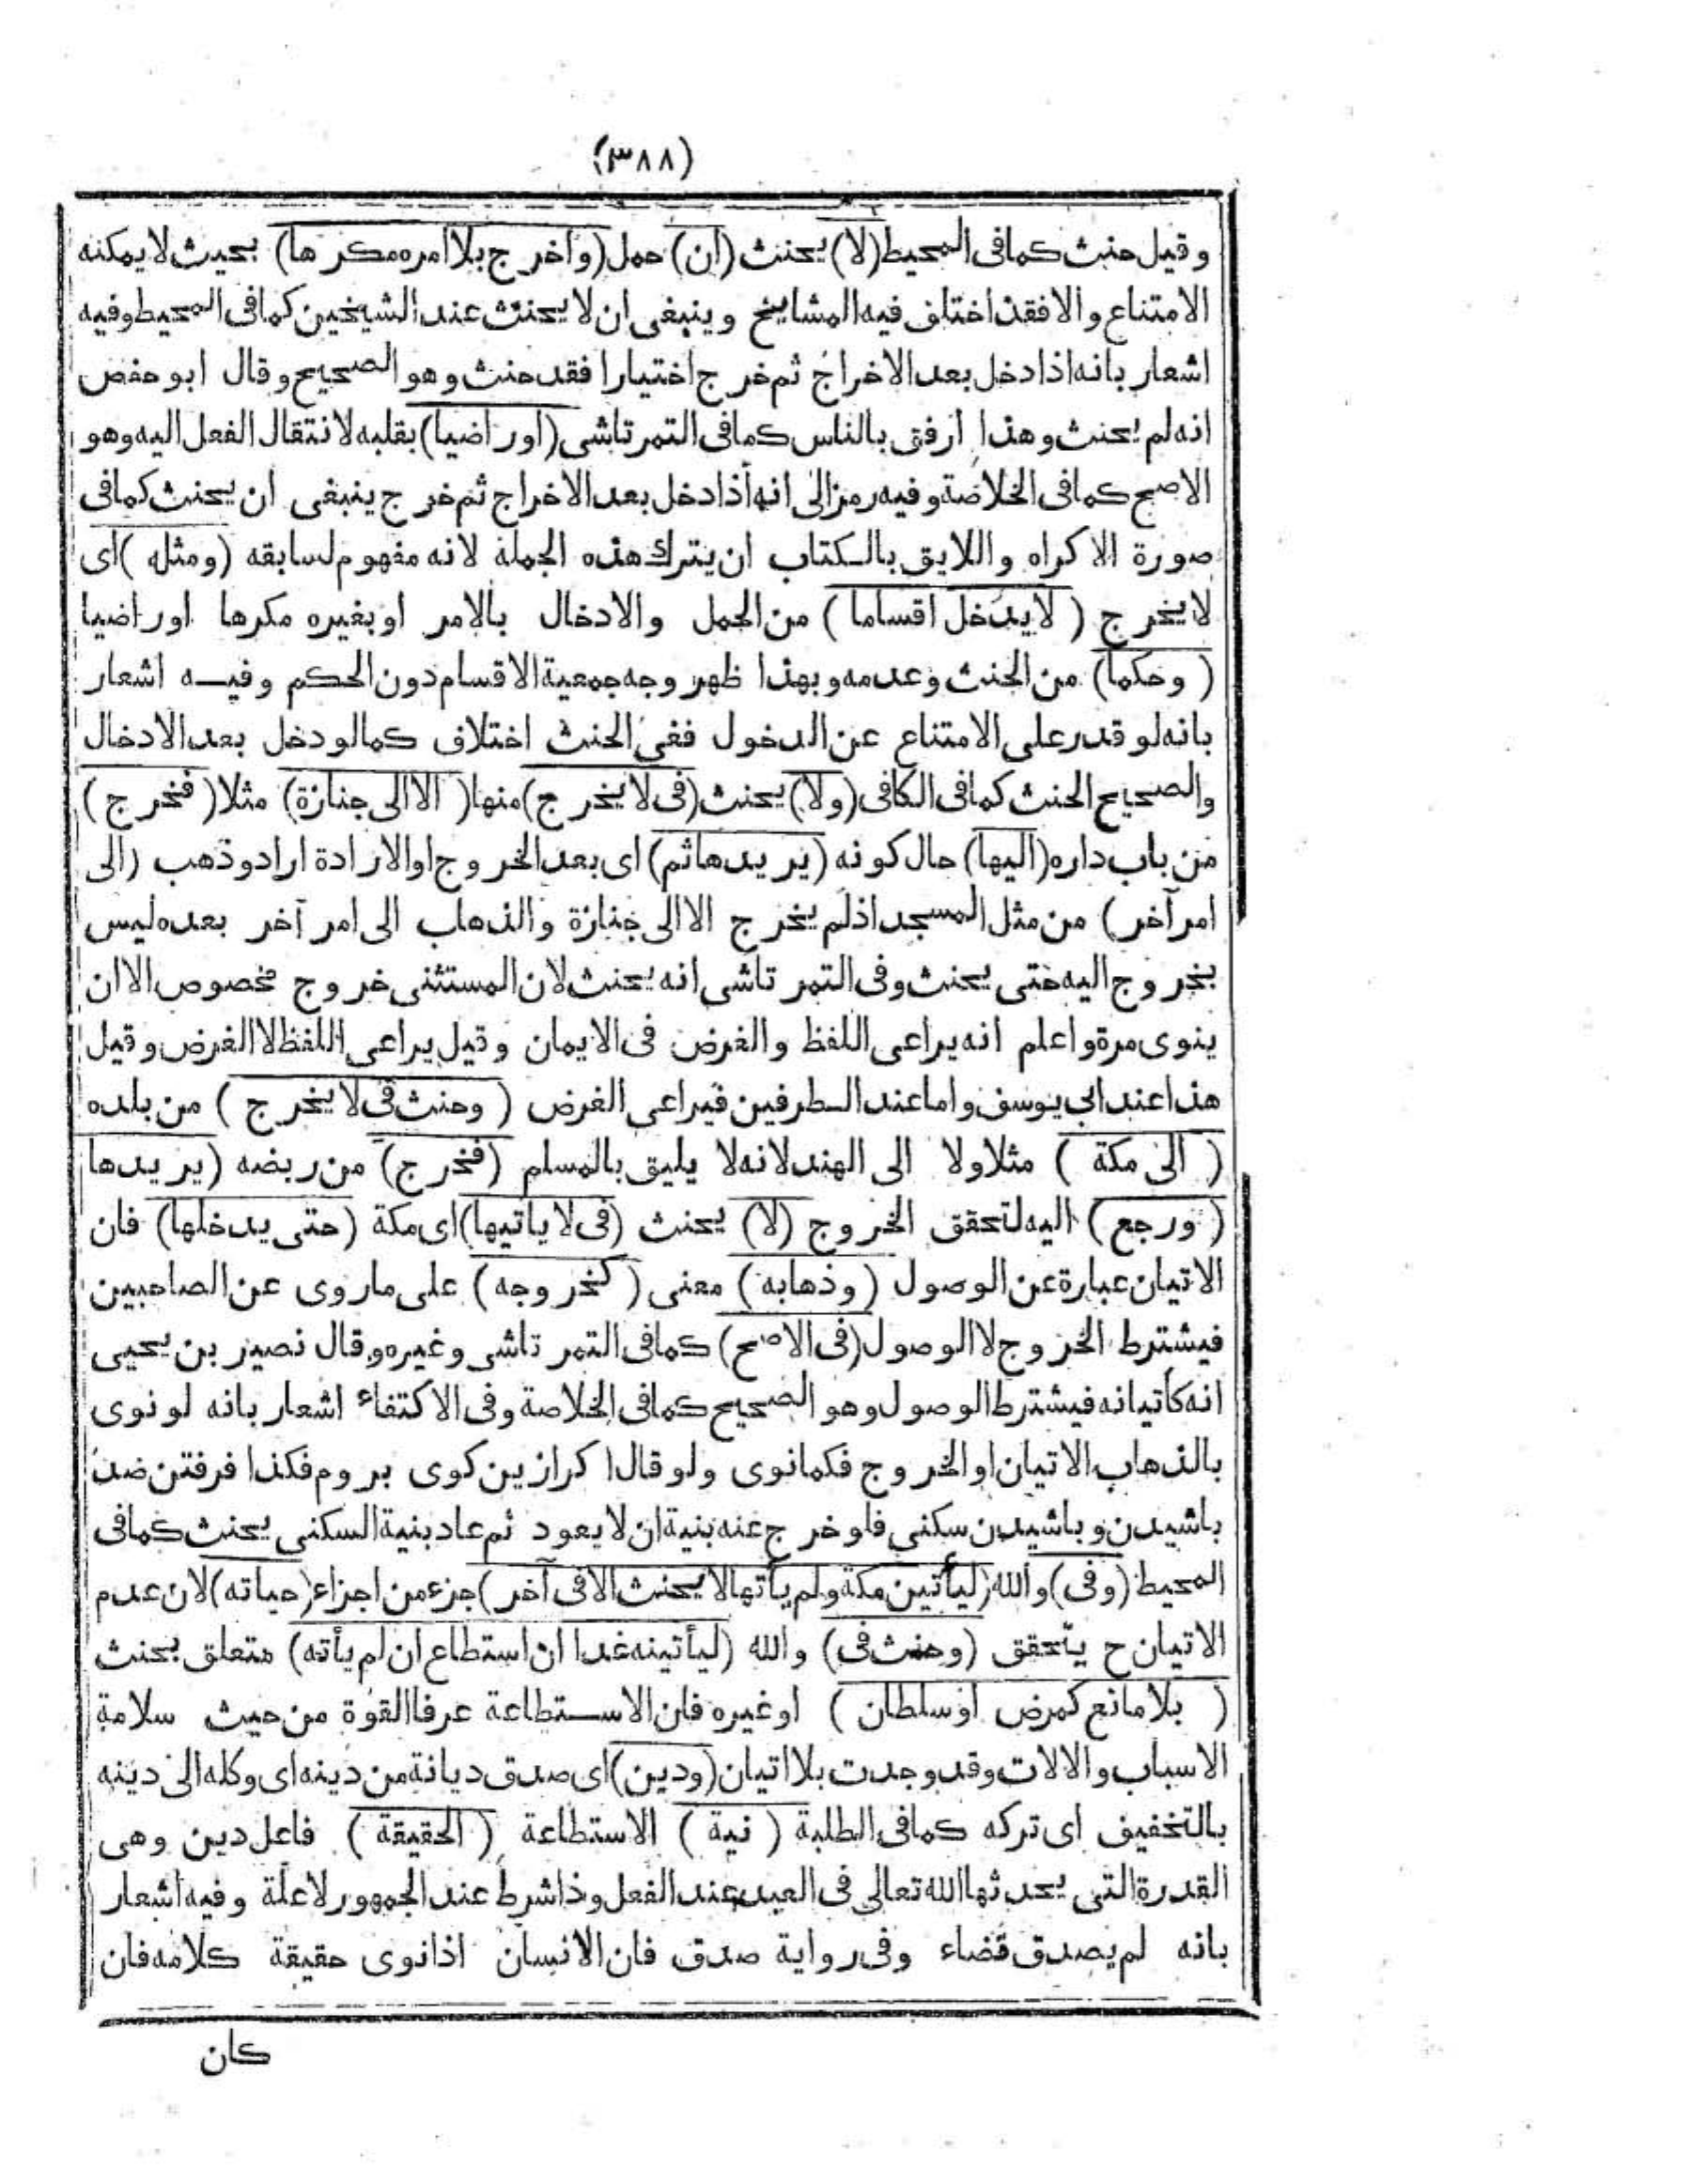 (٣٨٨)
وقيل حنث كما فى المحيط (لا) يحنث (ان) حمل (واخرج بلا امره مكرها) بحيث لا يمكنه
الامتناع والا فقد اختلف فيه المشايخ وينبغى ان لا يحنث عند الشيخين كما فى المحيط وفيه
اشعار بانه اذا دخل بعد الاخراج ثم خرج اختيارا فقد حنث وهو الصحيح وقال ابو حفص
انه لم يحنث وهذا ارفق بالناس كما فى التمرتاشى (او راضيا) بقلبه لانتقال الفعل اليه وهو
الاصح كما فى الخلاصة وفيه رمز الى انه اذا دخل بعد الاخراج ثم خرج ينبغى ان يحنث كما فى
صورة الاكراه واللايق بالكتاب ان يترك هذه الجملة لانه مفهوم لسابقه (ومثله) اى
لا يخرج (لا يدخل اقساما) من الحمل والادخال بالامر او بغيره مكرها او راضيا
(وحكما) من الحنث وعدمه وبهذا ظهر وجه جمعية الاقسام دون الحكم وفيه اشعار
بانه لو قدر على الامتناع عن الدخول ففى الحنث اختلاف كما لو دخل بعد الادخال
والصحيح الحنث كما فى الكافى (ولا) يحنث (فى لا يخرج) منها (الا الى جنازة) مثلا (فخرج)
من باب داره (اليها) حال كونه (يريدها ثم) اى بعد الخروج او الارادة اراد وذهب (الى
امر آخر) من مثل المسجد اذ لم يخرج الا الى جنازة والذهاب الى امر آخر بعده ليس
بخروج اليه حتى يحنث وفى التمرتاشى انه يحنث لان المستثنى خروج مخصوص الا ان
ينوى مرة واعلم انه يراعى اللفظ والغرض فى الايمان وقيل يراعى اللفظ لا الغرض وقيل
هذا عند ابى يوسف واما عند الطرفين فيراعى الغرض (وحنث فى لا يخرج) من بلده
(الى مكة) مثلا ولا الى الهند لانه لا يليق بالمسلم (فخرج) من ربضه (يريدها
(ورجع) اليه لتحقق الخروج (لا) يحنث (فى لا ياتيها) اى مكة (حتى يدخلها) فان
الاتيان عبارة عن الوصول (وذهابه) معنى (كخروجه) على ما روى عن الصاحبين
فيشترط الخروج لا الوصول (فى الاصح) كما فى التمرتاشى وغيره وقال نصير بن يحيى
انه كأتيانه فيشترط الوصول وهو الصحيح كما فى الخلاصة وفى الاكتفاء اشعار بانه لو نوى
بالذهاب الاتيان او الخروج فكما نوى ولو قال اكر ازين كوى بروم فكذا فرفتن ضد
باشيدن وباشيدن سكنى فلو خرج عنه بنية ان لا يعود ثم عاد بنية السكنى يحنث كما فى
المحيط (وفى) والله (ليأتين مكة ولم يأتها لا يحنث الا فى آخر) جزء من اجزاء (حياته) لان عدم
الاتيان ح يتحقق (وحنث فى) والله (ليأتينه غدا ان استطاع ان لم يأته) متعلق بحنث
(بلا مانع كمرض او سلطان) او غيره فان الاستطاعة عرفا القوة من حيث سلامة
الاسباب والالات وقد وجدت بلا اتيان (ودين) اى صدق ديانة من دينه اى وكله الى دينه
بالتخفيف اى تركه كما فى الطلبة (نية) الاستطاعة (الحقيقة) فاعل دين وهى
القدرة التى يحدثها الله تعالى فى العبد عند الفعل وذا شرط عند الجمهور لا علة وفيه اشعار
بانه لم يصدق قضاء وفى رواية صدق فان الانسان اذا نوى حقيقة كلامه فان
كان